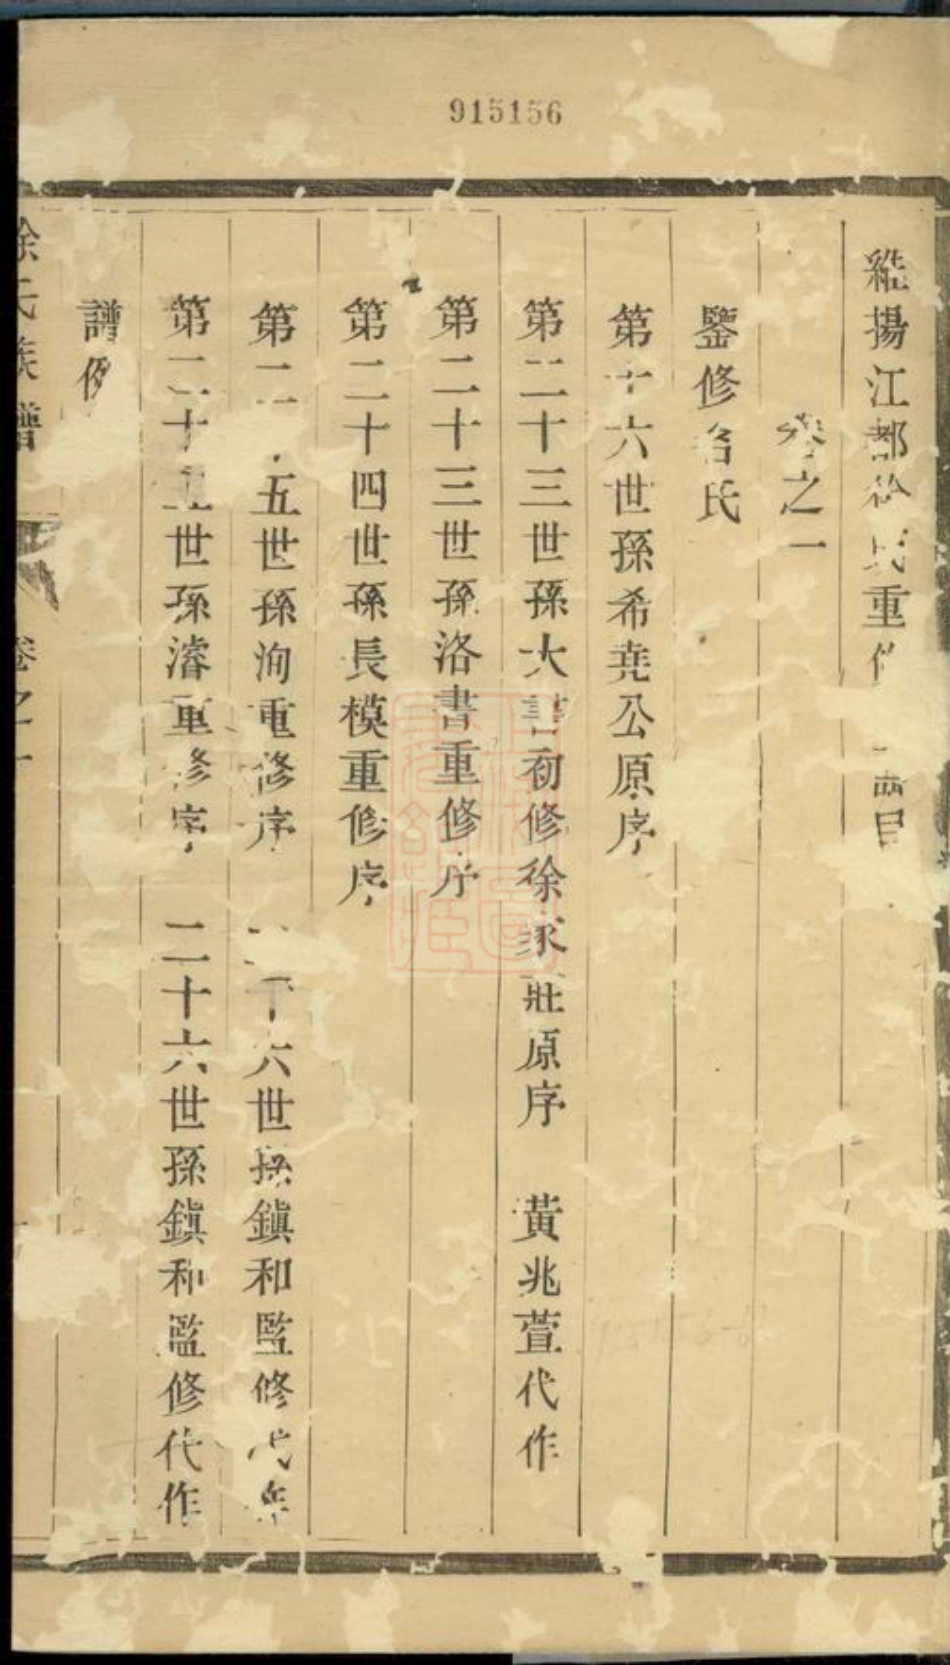 915156
維揚江都徐氏重修 譜目
卷之一
鑒修名氏
第十六世孫希堯公原序
第二十三世孫大書初修徐家莊原序 黃兆萱代作
第二十三世孫洛書重修序
第二十四世孫長模重修序
第二十五世孫洵重修序 二十六世孫鎮和監修代作
第二十五世孫濬重修序 二十六世孫鎮和監修代作
譜例
徐氏族譜 卷之一